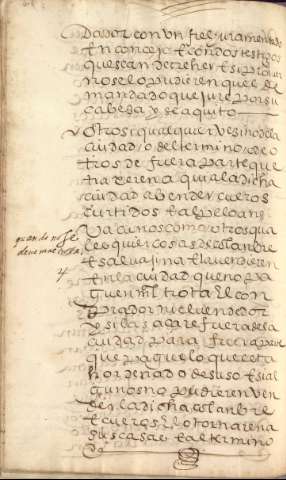 dador con un fiel juramentado
en concejo e con dos testigos
que sean de creher e si provar
no se lo pudieren quel de
mandado que jure por su
cabeça y sea quito
otrosi qualquier vesino de la
ciudad o del termino o de o
tros de fuera parte que
traxere a qui a la dicha
ciudad a bender cueros
curtidos e al pelo ansi
vacunos como otros qua
les quier cosas de colanbre
e salvajina e la vendieren
en la ciudad que no pa
guen
prador ni el vendedor
e si la sacare fuera de la
ciudad para fuera parte
que pague lo que esta
hordenado de suso e si al
gunos no pudieren ven
der la dicha colanbre
e cueros e lo tornaren a
sus casas e al termino
quando no se
deve